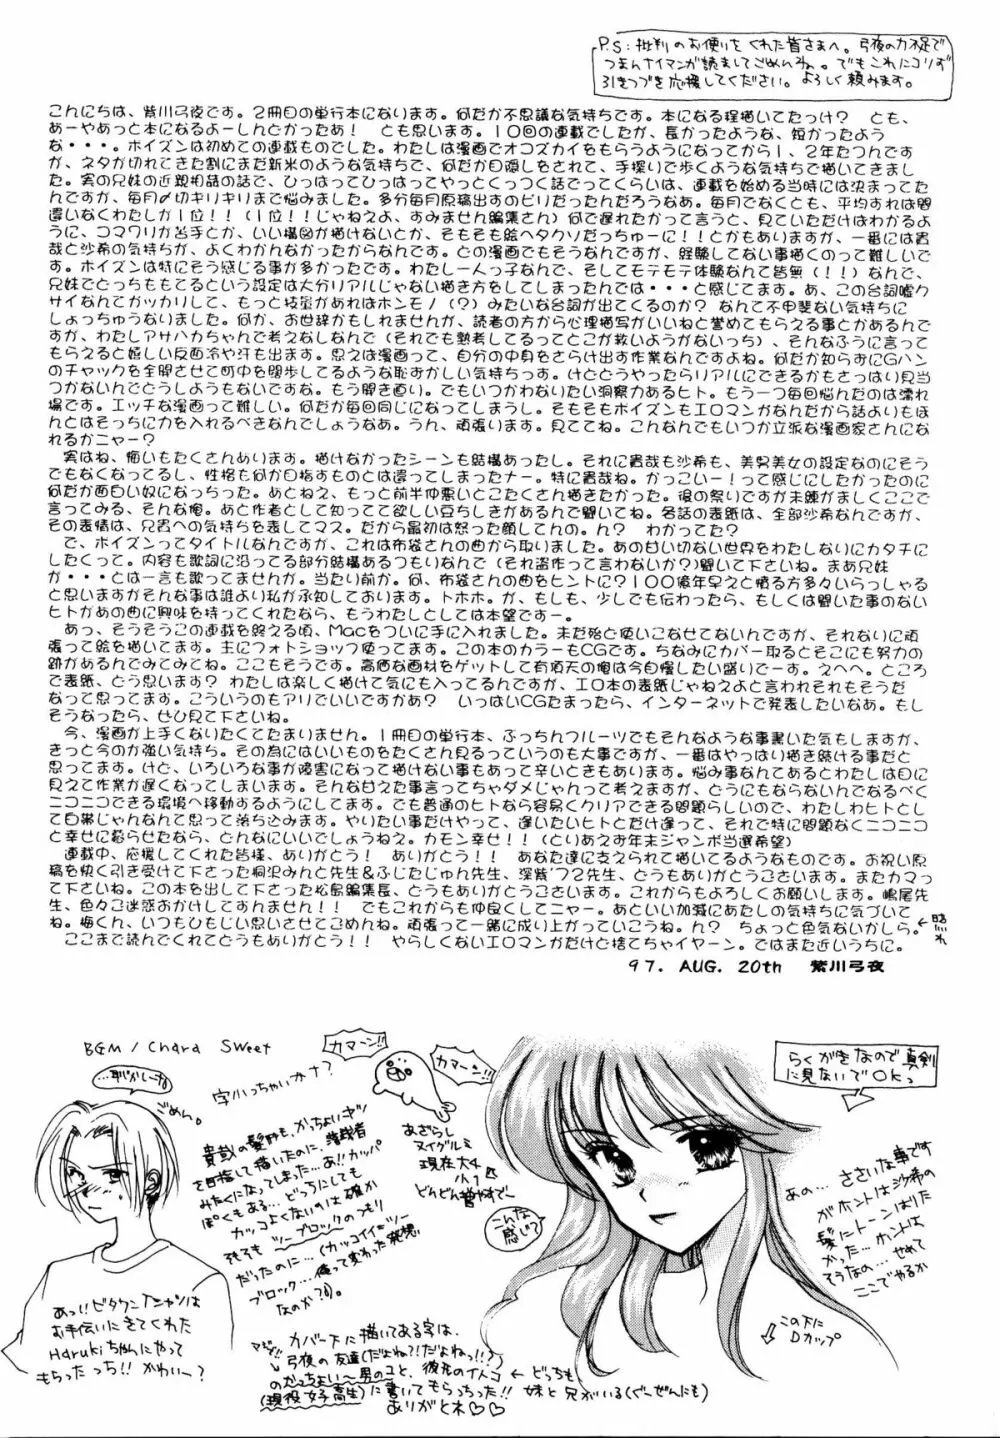 P.S:批判のお便りをくれた皆さまへ。弓夜の力不足で
つまんナイマンガ読ましてごめんね。でもこれにコリず
引きつづき応援してください。よろしく頼みます。
こんにちは、紫川弓夜です。2冊目の単行本になります。何だか不思議な気持ちです。本になる程描いてたっけ？　とも、
あーやあっと本になるよーしんどかったあ！　とも思います。10回の連載でしたが、長かったような、短かったよう
な・・・。ポイズンは初めての連載ものでした。わたしは漫画でオコズカイをもらうようになってから1、2年たつんです
が、ネタが切れてきた割にまだ新米のような気持ちで、何だか目隠しをされて、手探りで歩くような気持ちで描いてきまし
た。実の兄妹の近親相姦の話で、ひっぱってひっぱってやっとくっつく話でってくらいは、連載を始める当時には決まってた
んですが、毎月〆切キリキリまで悩みました。多分毎月原稿出すのビリだったんだろうなあ。毎月でなくとも、平均すれば間
違いなくわたしが1位！！（1位！！じゃねえよ、すみません編集さん）何で遅れたかって言うと、見ていただけばわかるよ
うに、コマワリが苦手とか、いい構図が描けないとか、そもそも絵ヘタクソだっちゅーに！！とかもありますが、一番には貴
哉と沙希の気持ちが、よくわかんなかったからなんです。どの漫画でもそうなんですが、経験してない事描くのって難しいで
す。ポイズンは特にそう感じる事が多かったです。わたし一人っ子なんで、そしてモテモテ体験なんて皆無（！！）なんで、
兄妹でとっちももてるという設定は大分リアルじゃない描き方をしてしまったんでは・・・と感じてます。あ、この台詞嘘ク
サイなんてガッカリして、もっと技量があればホンモノ（？）みたいな台詞が出てくるのか？　なんて不甲斐ない気持ちに
しょっちゅうなりました。何か、お世辞かもしれませんが、読者の方から心理描写がいいねと誉めてもらえる事とかあるんで
すが、わたしアサハカちゃんで考えなしなんで（それでも熟考してるってとこが救いようがないっち）、そんなふうに言って
もらえると嬉しい反面冷や汗も出ます。思えば漫画って、自分の中身をさらけ出す作業なんですよね。何だか知らずにGパン
のチャックを全開させて町中を闊歩してるような恥ずかしい気持ちっす。けどどうやったらリアルにできるかもさっぱり見当
つかないんでどうしようもないですな。もう開き直り。でもいつかわなりたい洞察力あるヒト。もう一つ毎回悩んだのは濡れ
場です。エッチな漫画って難しい。何だか毎回同じになってしまうし。そもそもポイズンもエロマンガなんだから話よりもほ
んとはそっちに力を入れるべきなんでしょうなあ。うん、頑張ります。見ててね。こんなんでもいつか立派な漫画家さんにな
れるかニャー？
　実はね、悔いもたくさんあります。描けなかったシーンも結構あったし。それに貴哉も沙希も、美男美女の設定なのにそう
でもなくなってるし、性格も何か目指すものとは違ってしまったナー。特に貴哉ね。かっこいー！って感じにしたかったのに
何だか面白い奴になっちった。あとねえ、もっと前半仲悪いとこたくさん描きたかった。後の祭りですが未練がましくここで
言ってみる、そんな俺。あと作者として知ってて欲しい豆ちしきがあるんで聞いてね。各話の表紙は、全部沙希なんですが、
その表情は、兄貴への気持ちを表してマス。だから最初は怒った顔してんの。ん？　わかってた？
　で、ポイズンってタイトルなんですが、これは布袋さんの曲から取りました。あの甘い切ない世界をわたしなりにカタチに
したくって。内容も歌詞に沿ってる部分結構あるつもりなんで（それ盗作って言わないか？）聞いて下さいね。まあ兄妹
が・・・とは一言も歌ってませんが。当たり前か。何、布袋さんの曲をヒントに？100億年早えと憤る方多々いらっしゃる
と思いますがそんな事は誰より私が承知しております。トホホ。が、もしも、少しでも伝わったら、もしくは聞いた事のない
ヒトがあの曲に興味を持ってくれたなら、もうわたしとしては本望ですー。
　あっ、そうそうこの連載を終える頃、Macをついに手に入れました。未だ殆ど使いこなせてないんですが、それなりに頑
張って絵を描いてます。主にフォトショップ使ってます。この本のカラーもCGです。ちなみにカバー取るとそこにも努力の
跡があるんでみてみてね。ここもそうです。高価な画材をゲットして有頂天の俺は今自慢したい盛りでーす。えへへ。ところ
で表紙、どう思います？　わたしは楽しく描けて気にも入ってるんですが、エロ本の表紙じゃねえよと言われそれもそうだ
なって思ってます。こういうのもアリでいいですかあ？　いっぱいCGたまったら、インターネットで発表したいなあ。もし
そうなったら、ぜひ見て下さいね。
　今、漫画が上手くなりたくてたまりません。1冊目の単行本、ぶっちんフルーツでもそんなような事書いた気もしますが、
きっと今のが強い気持ち。その為にはいいものをたくさん見るっていうのも大事ですが、一番はやっぱい描き続ける事だと
思ってます。けど、いろいろな事が障害になって描けない事もあって辛いときもあります。悩み事なんてあるとわたしは目に
見えて作業が遅くなってしまいます。そんな甘えた事言ってちゃダメじゃんって考えますが、どうにもならないんでなるべく
ニコニコできる環境へ移動するようにしてます。でも普通のヒトなら容易くクリアできる問題らしいので、わたしわヒトとし
て白帯じゃんなんて思って落ち込みます。やりたい事だけやって、逢いたいヒトとだけ逢って、それで特に問題なくニコニコ
と幸せに暮らせたなら、どんなにいいでしょうねえ。カモン幸せ！！（とりあえお年末ジャンボ当選希望）
　連載中、応援してくれた皆様、ありがとう！　ありがとう！！　あなた達に支えられて描いてるようなものです。お祝い原
稿を快く引き受けて下さった桐沢みんと先生&ふじたじゅん先生、深紫'72先生、どうもありがとうございます。またカマっ
て下さいね。この本を出して下さった松島編集長、どうもありがとうございます。これからもよろしくお願いします。嶋尾先
生、色々ご迷惑おかけしてすんません！！　でもこれからも仲良くしてニャー。あといい加減にあたしの気持ちに気づいて
ね。梅くん、いつもひもじい思いさせてごめんね。頑張って一緒に成り上がっていこうね。ん？　ちょっと色気ないかしら。
　ここまで読んでくれてどうもありがとう！！　やらしくないエロマンガだけど捨てちゃイヤーン。ではまた近いうちに。
97. AUG. 20th　紫川弓夜
BGM / Chara Sweet
…恥ずかしーね
ごめん。
字小っちゃいかナ?
カマーン!!
カマーン!!
あざらし
ヌイグルミ
現在大4
小1
どんどん増やすでー
こんな
感じで
貴哉の髪形も、かっちょいギバ
を目指して描いたのに、挑戦者
みたくになってしまった…あ!!カッパ
ぽくもある…。どっちにしても
カッコよくないのは確か
そもそも ツーブロックのつもり
だったのに…(カッコイイ=ツー
ブロック…俺って変わった発想
なのか?)。
らくがきなので真剣
に見ないでOKっ
あの… ささいな事です
がホントは沙希の
髪にトーンはりた
かった…ホントは
そうなの…せめて
ここでやるか
この下に
Dカップ
あっ!!ビタワンTシャツは
お手伝いにきてくれた
Harukiちゃんにやって
もらったっち!!かわいー?
マジッ!! カバー下に描いてある字は、
弓夜の友達(だよね?!だよねっ!!?)
のかっちょいー男のコと、彼氏のイトコ ← どっちも
(現役女子高生)に書いてもらっちった!! 妹と兄がいる(ぐーぜんにも)
ありがとネ♡♡